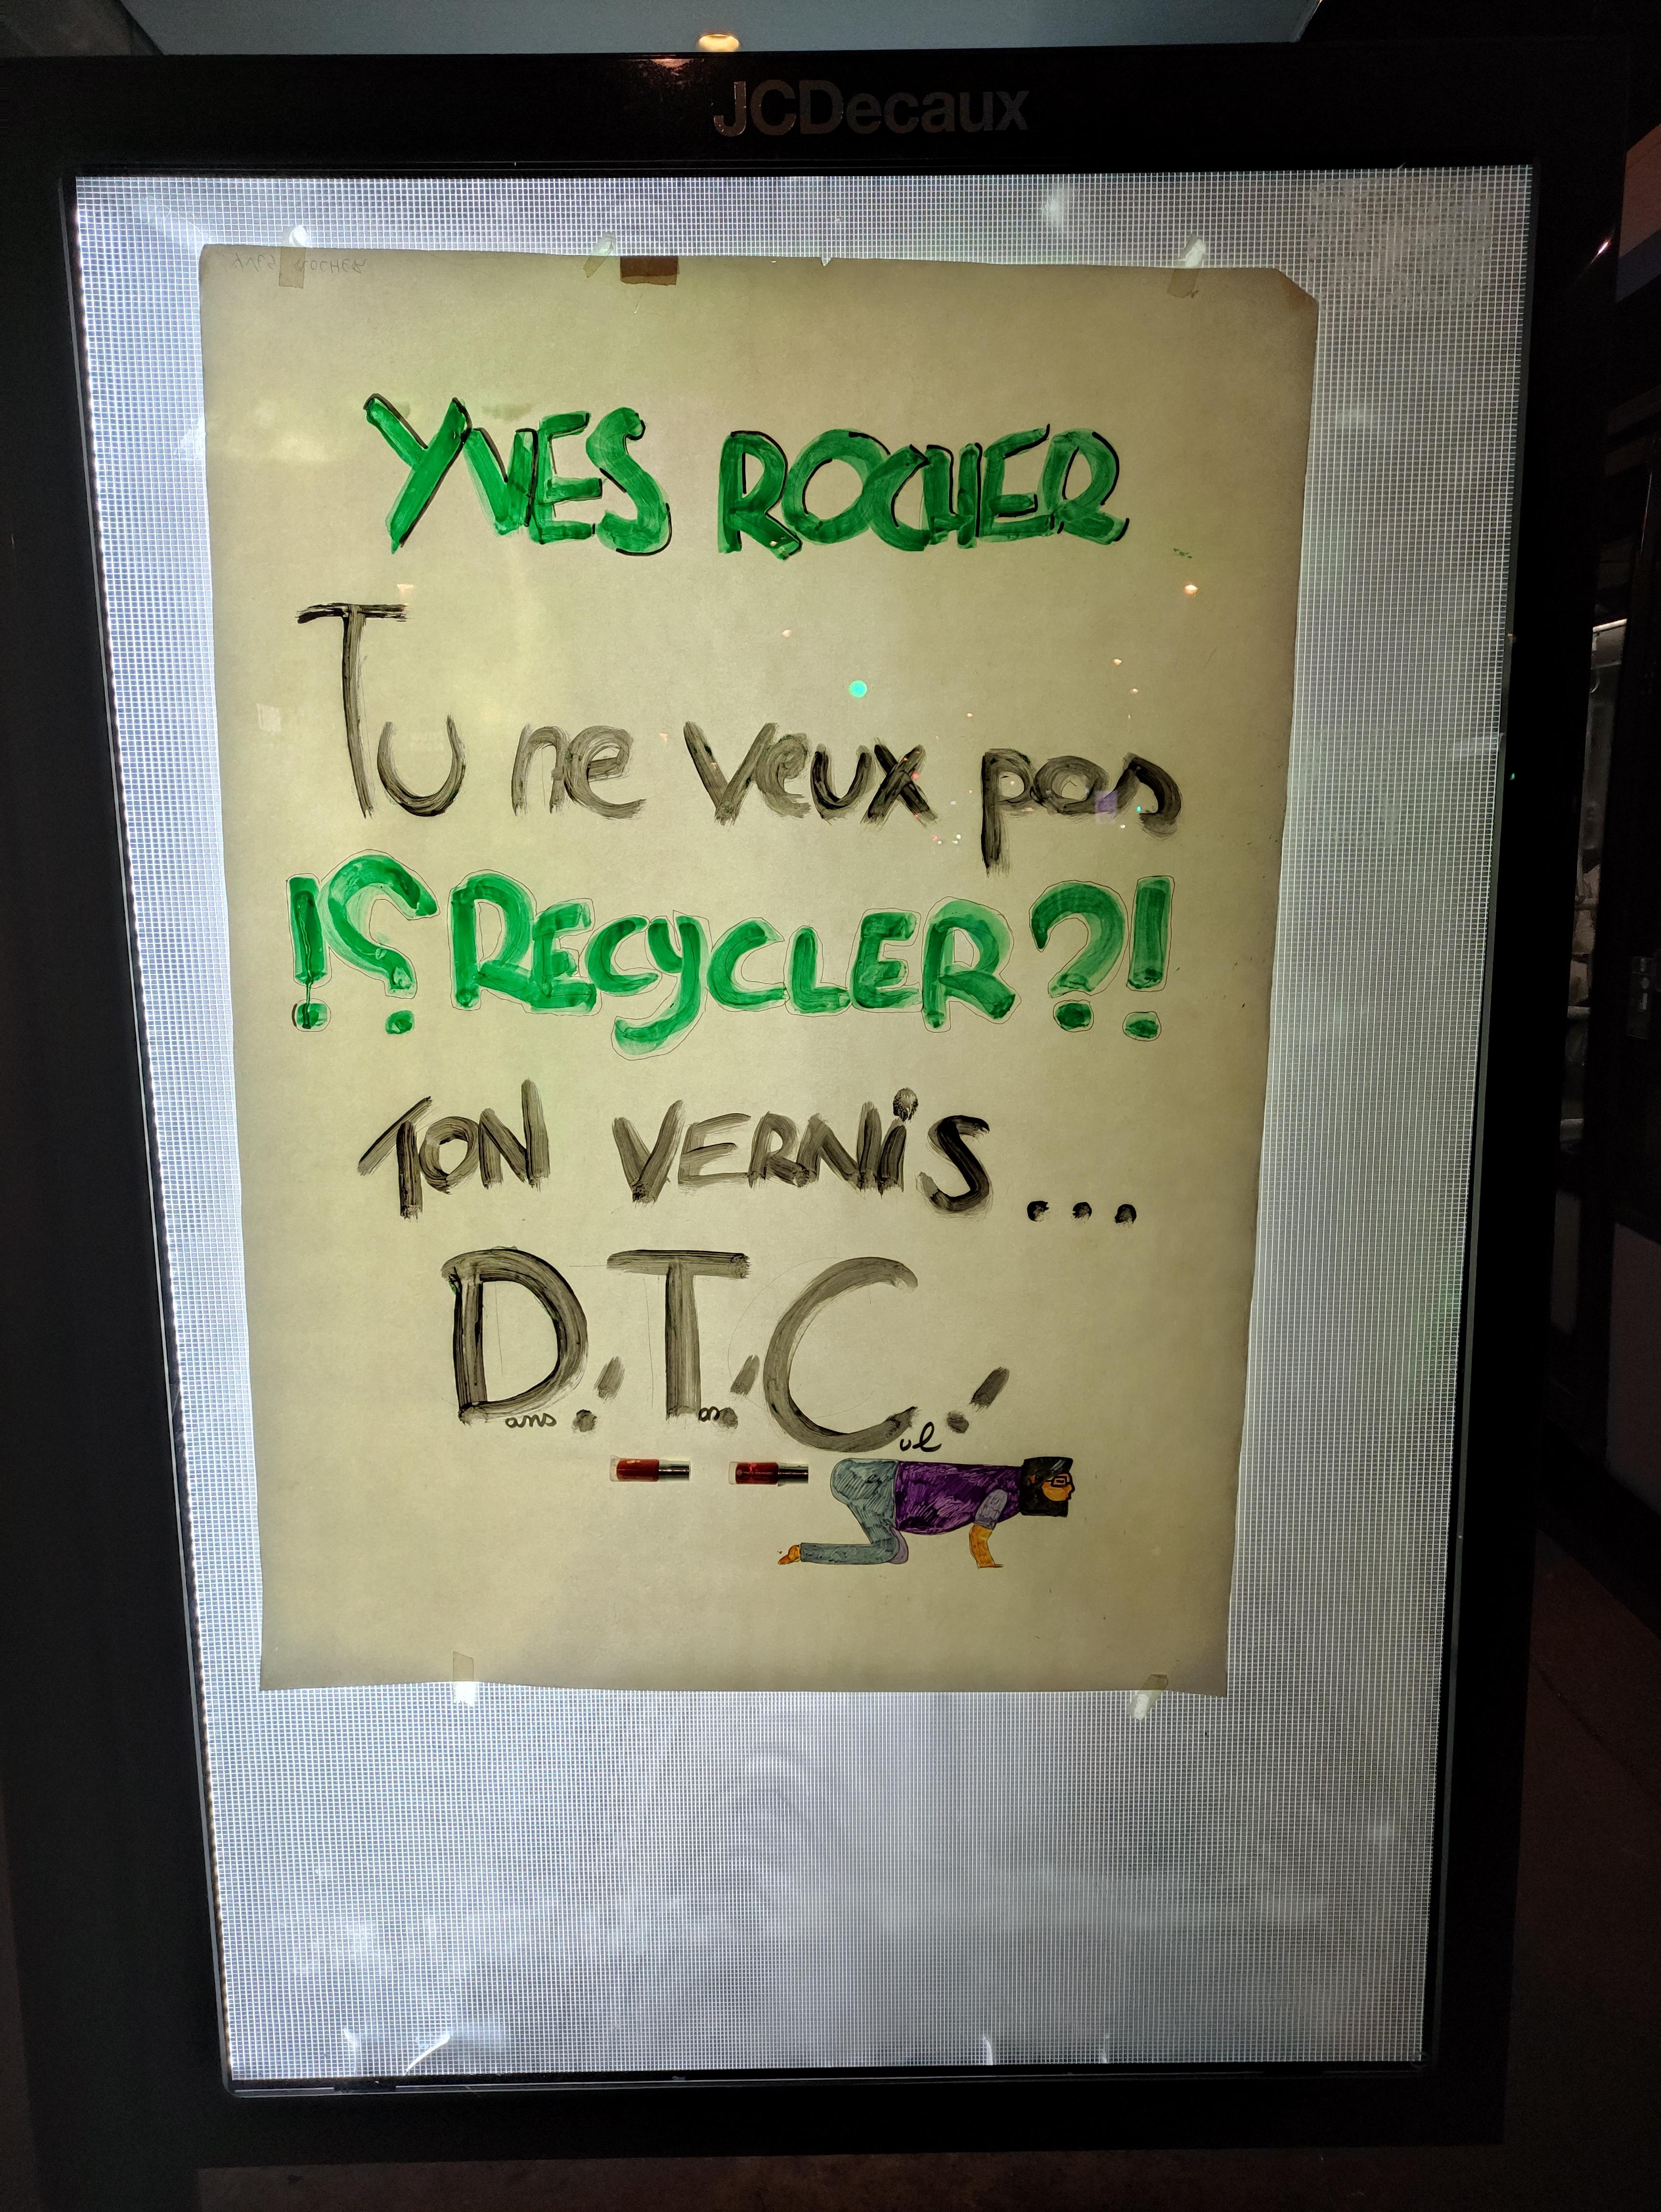 JCDecaux
YVES ROCHER
YVES ROCHER
Tu ne veux pas
!? RECYCLER ?!
TON VERNiS...
Dans! Ton! Cul!